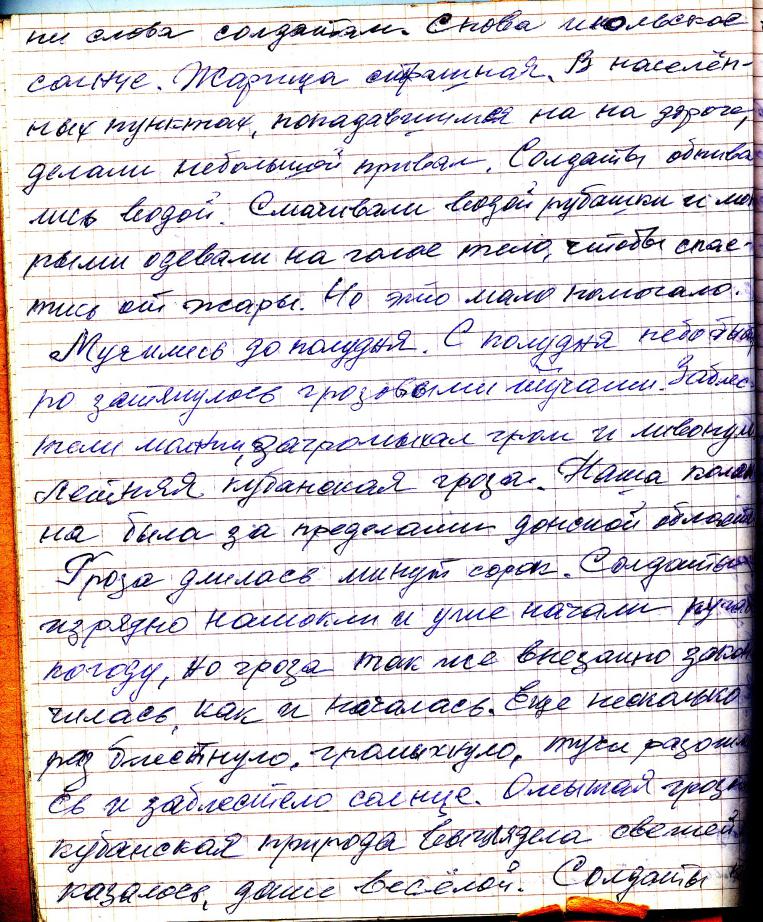 ни слова солдатам. Снова июльское
солнце. Жарища страшная. В населён-
ных пунктах, попадавшимся на на дороге,
делали небольшой привал. Солдаты обпива
лись водой. Смачивали водой рубашки и мо
рыми одевали на голое тело, чтобы спас-
тись от жары. Но это мало помогало.
Мучились до полудня. С полудня небо быст
ро затянулось грозовыми тучами. Заблес-
тели молнии, загромыхал гром и ливонул
летняя кубанская гроза. Наша колон
на была за пределами донской области
Гроза длилась минут сорок. Солдаты
изрядно намокли и уже начали ругать
погоду, но гроза так же внезапно закон
чилась, как и началась. Еще несколько
раз блестнуло, громыхнуло, тучи разошл
сь и заблестело солнце. Омытая грозой
кубанская природа выглядела свежей
казалось, даже весёлой. Солдаты